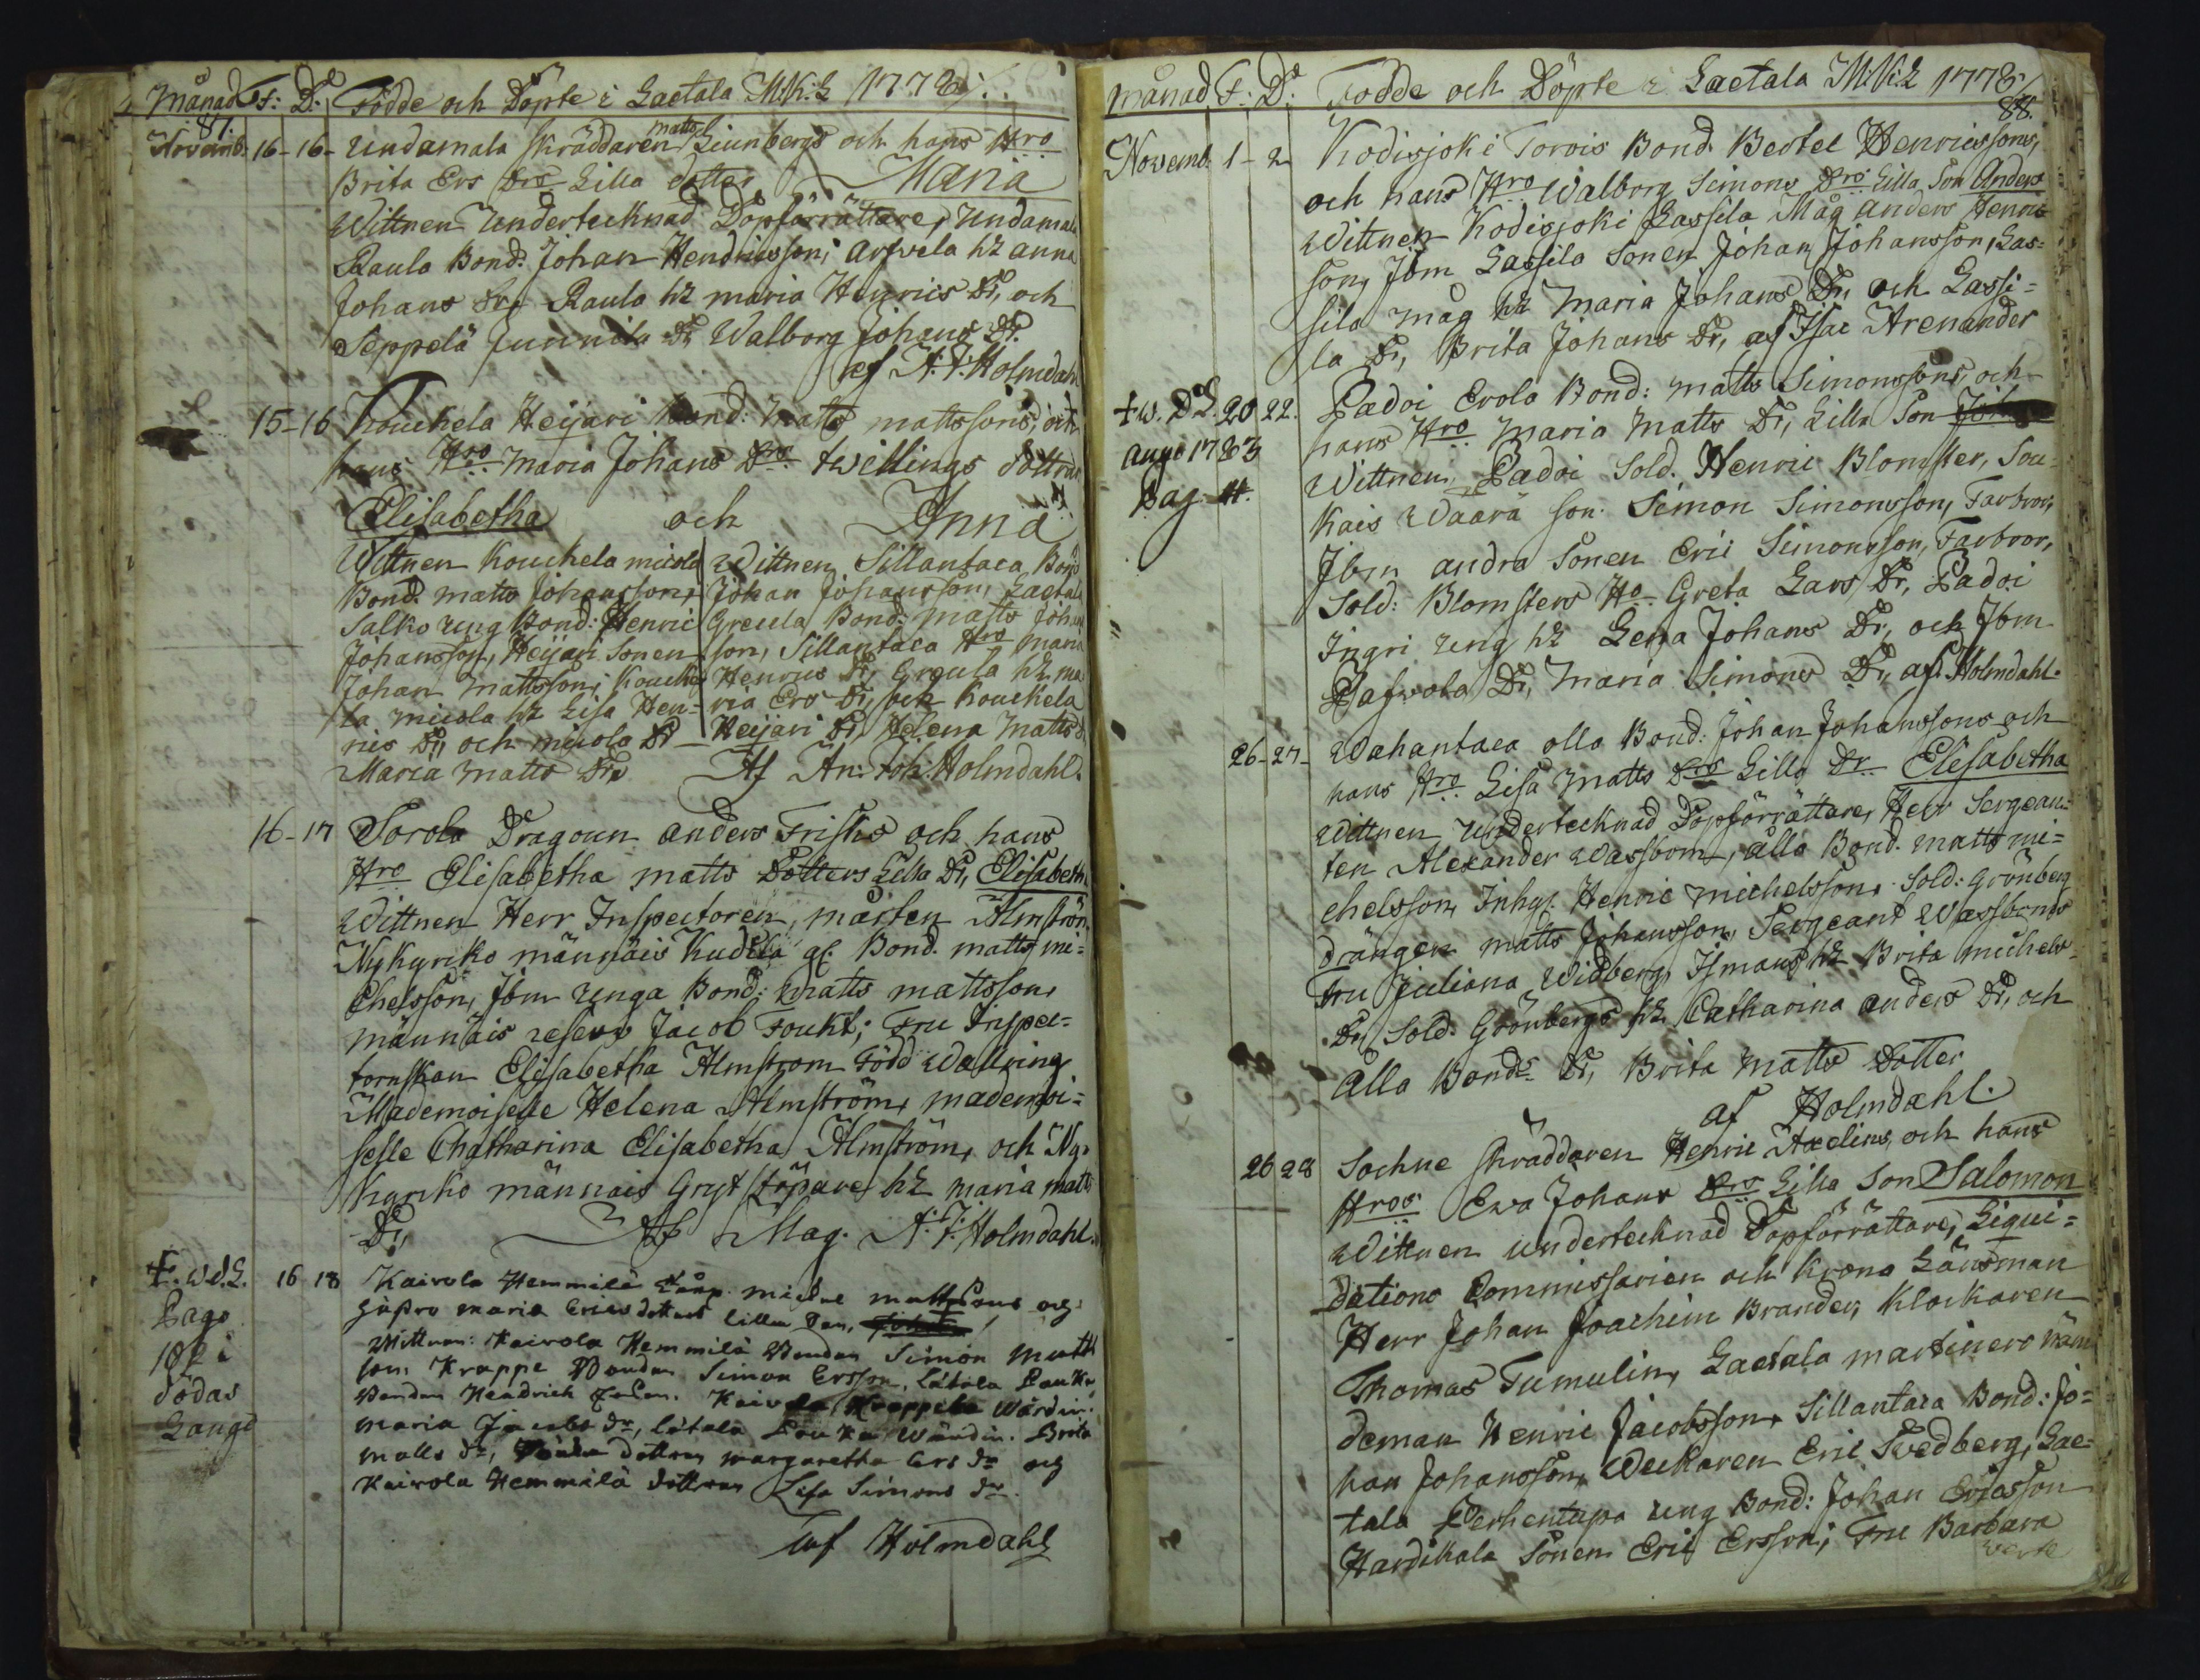 Månad F: D: Födde och Döpte i Laetala M:K:L 1778/.
87.
Novemb: 16-16- Undamala Skräddaren matts Liunbergs och hans Hro
Brita Ers Drs Lilla dotter Maria
Wittnen Undertecknad Döpförrättare, Undamala
Raula Bond. Johan Hendricsson; Arfvela hz Anna
Johans Dr, Raula hz Maria Henrics Dr, och
Seppelä Junnila Dr Walborg Johans Dr.
af A:J:Holmdahl
15-16 Kouckela Heijari Bond: Matts mattssons, och
hans Hro Maria Johans Drs twillings döttrar
Elisabetha och Anna
Wittnen Kouckela micola
Bond. Matts Johansson,
Salko ung Bond: Henric
Johansson, Heijari Sonen
Johan Mattsson; Koucke
la micola hz Lisa Hen-
rics Dr, och micola Dr
Maria Matts Dr,
Wittnen Sillantaca Bond
Johan Johansson, Laetala
Greula Bond: Matts Johan
son, Sillantaca Hro Maria
Henrics Dr, Greula hz ma
ria Ers Dr, och Kouckela
Heijari Dr, Helena Matts d.
Af An: Joh: Holmdahl.
16-17 Sorola Dragoun Anders Frisks och hans
Hro Elisabetha Matts Dotters Lilla Dr, Elisabeth
Wittnen Herr Inspectoren, Mårten Almström
Nykyrko männäis Kudila gl. Bond. matts mi=
chelsson, Jbm Unga Bond: Matts mattsson,
männäis reserv Jacob Foukt; Fru Inspec=
torskan Elisabetha Almstrom Född Wallring
Mademoiselle Helena Almström, mademoi=
selle Chatharina Elisabetha Almström, och Ny-
kyrko männais Grytstöpare hz Maria matts
Dr, Af Mag. A:J:Holmdahl.
†. W.d.L. 16 18 Kairola Hemmilä mattssons och
Pago
101 i
Dödas
Längd
hustro Maria Erics dotters lilla Son, Johan
Wittnen: Kairola Hemmilä Bonden Simon Matts
son, Krappe Bonden Simon Ersson, låtala Pouka
Bonden Hendrich Kairola Krappila Wärdin:
Maria Jacobs dr, låtala Pouka Wärdin. Brita
Matts dr, dottren margaretha Ers dr och
Kairola Hemmilä dottren Lisa Simons dr.
Af Holmdahl
Månad F: D: Födde och Döpte i Laetala M:K:L 1778/
88.
Novemb. 1-2 Kodisjoki Torvis Bond. Bertel Henricssons,
och hans Hro Walborg Simons Drs Lilla Son Anders
Wittnen Kodisjoki Lassila Måg Anders Henrics
son, Jbm Lassila Sonen Johan Johansson, Las=
sila måg hz Maria Johans Dr, och Lassi=
la Dr, Brita Johans Dr, af Isac Arenander
†W. D.L. 20 22. Padoi Erola Bond: matts Simonssons, och
Anno 1783
Pag. 4.
hans Hro Maria Matts Dr, Lilla Son Joh
Wittnen, Padoi Sold. Henric Blomster, Sou=
kais Waara son. Simon Simonsson, Farbror,
Jbm andra Sonen Eric Simonsson, Farbror,
Sold: Blomsters Ho Greta Lars Dr, Padoi
Ingri ung hz Lena Johans Dr, och Jbm
Pafvola Dr, Maria Simons Dr, af. Holmdahl.
26-27- Wahantaca Olla Bond: Johan Johanssons och
hans Hro Lisa Matts Drs Lilla Dr Elisabetha
Wittnen Undertecknad Döpförrättare, Herr Sergean=
ten Alexander Wassbom, Alla Bond. Matts mi=
chelsson, Inhys. Henric Michelsson, Sold: Grönberg
drängen matts Johansson, Sergeant Wassboms
Fru Juliana Widberg, Jsmans hz Brita Michels
Dr, Sold. Grönbergs hz Catharina Anders Dr, och
Alla Bonds Dr, Brita Matts Dotter
af Holmdahl.
26 28 Sochne Skräddaren Henric Axelins, och hans
Hros Ewa Johans Drs Lilla Son Salomon
Wittnen Undertecknad Döpförrättare, Liqui=
dations Commissarien och Krono Länsman
Herr Johan Joachim Brander, Klockaren
Thomas Tumulin, Laetala martinero Näm
deman Henric Jacobsson, Sillantaca Bond: Jo=
han Johansson, Weckaren Eric Svedberg, Lae=
tala Perhentupa ung Bond: Johan Ericsson
Hardikala Sonen Eric Ersson; Fru Barbara